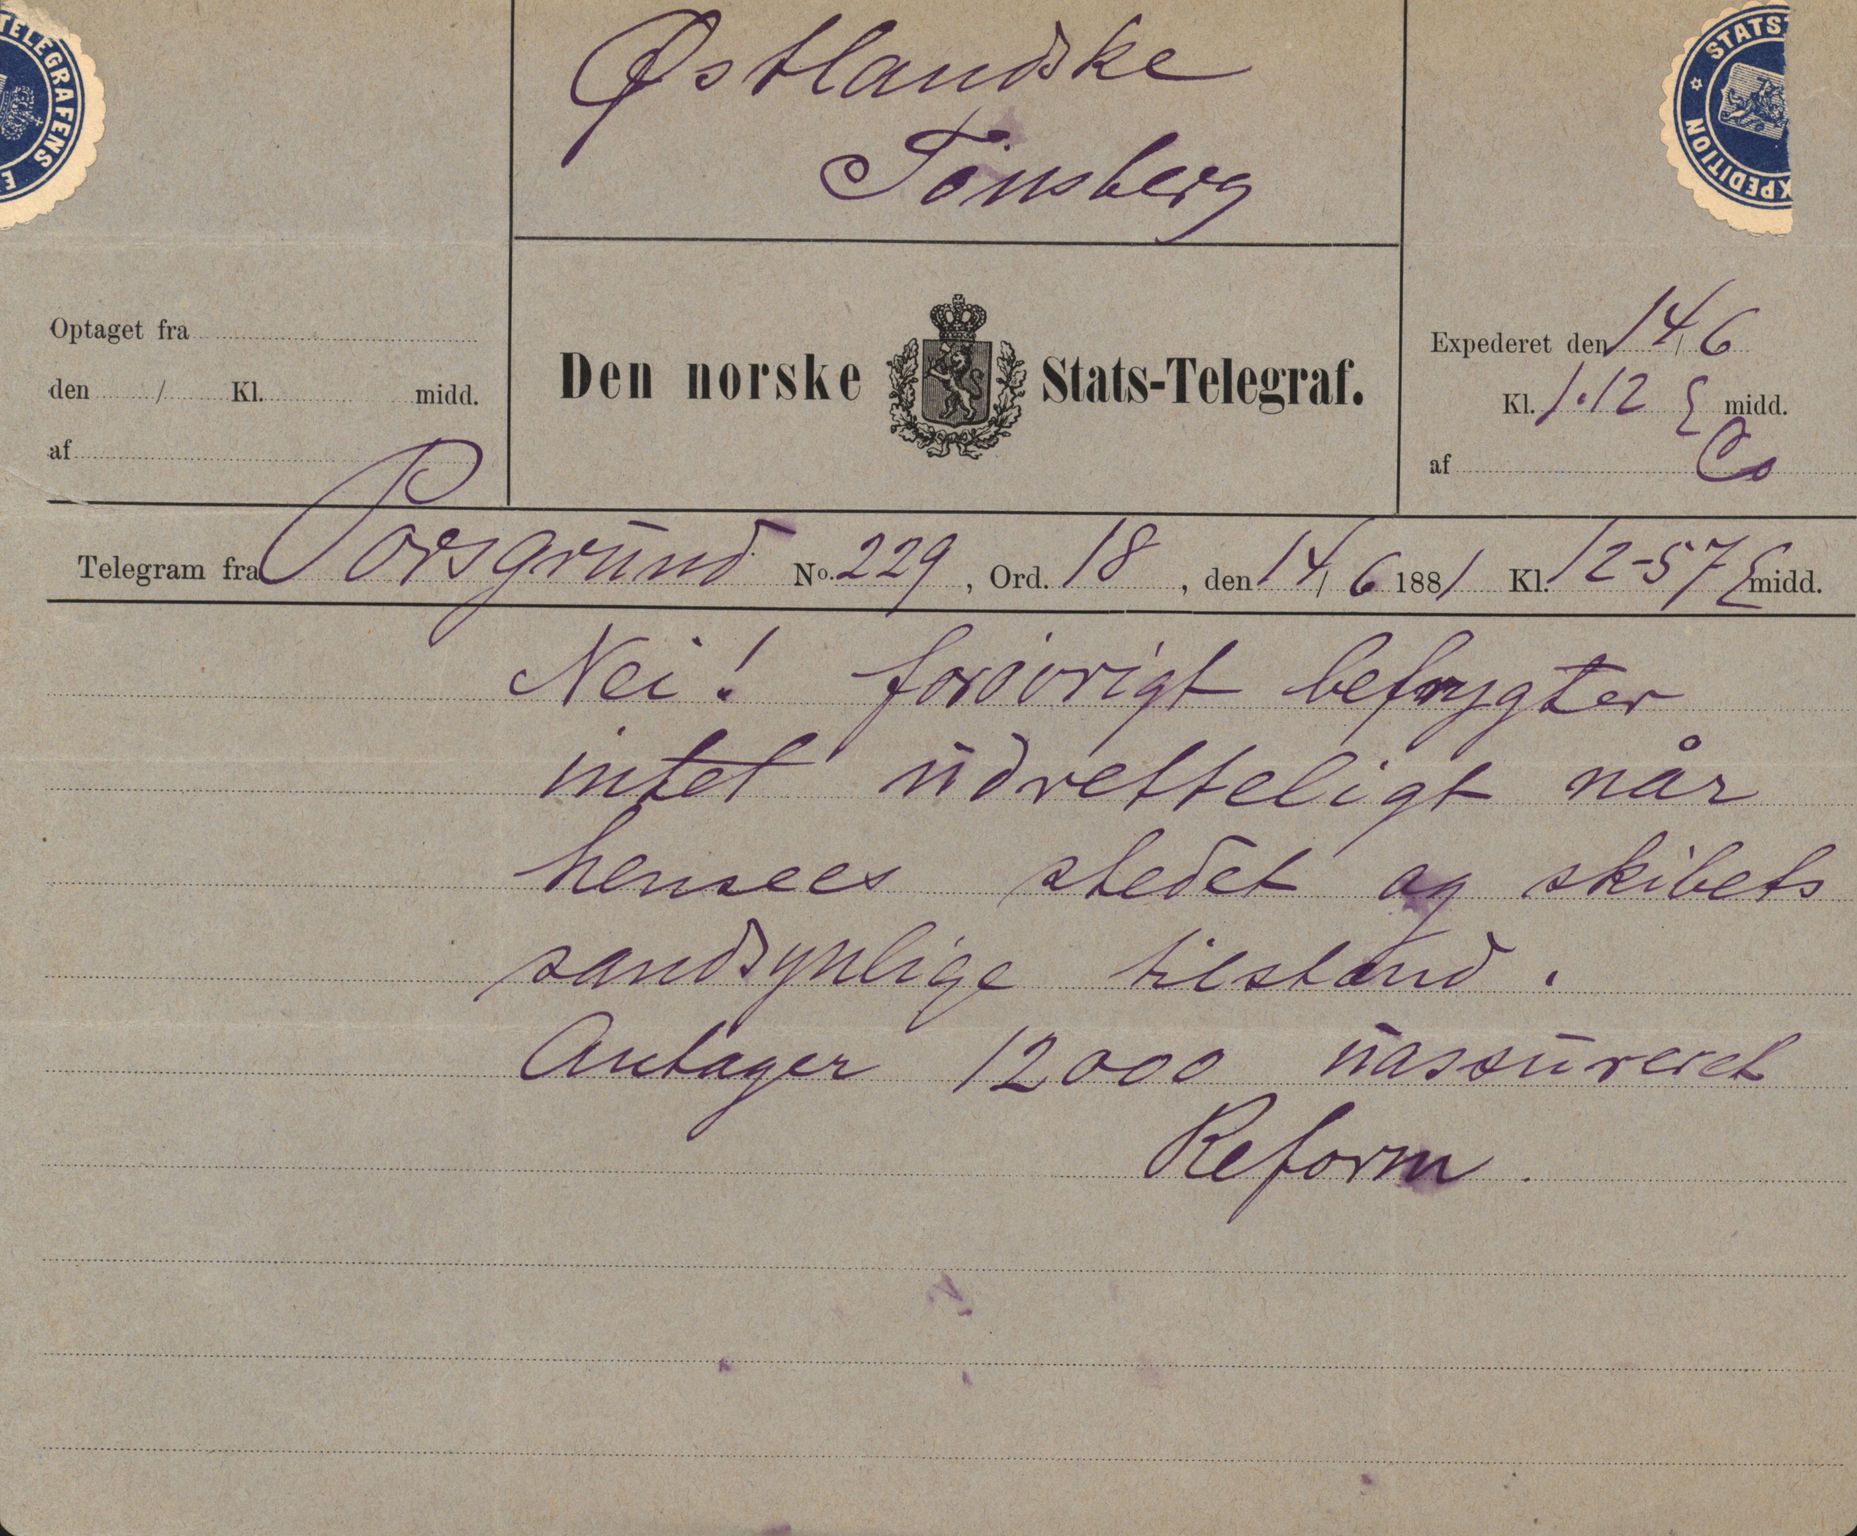 TELEGRAFENS E
STATS EXPEDITION
Østlandske
Tönsberg
Optaget fra
den / Kl. midd.
af
Den norske Stats-Telegraf.
Expederet den 14/6
Kl. 1.12 E midd.
af Co
Telegram fra Porsgrund No. 229, Ord. 18, den 14/6 1881 Kl. 12-57 E midd.
Nei! forövrigt befrygter
intet udretteligt når
hensees stedet og skibets
sandsynlige tilstand.
Antager 12000 uassureret
Reform.